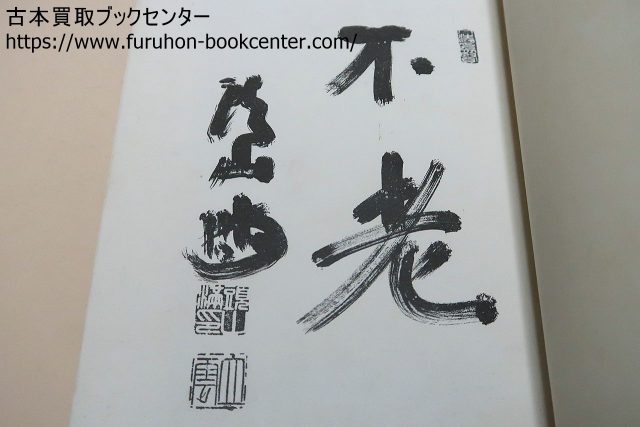 古本買取ブックセンター
https://www.furuhon-bookcenter.com/
不老
頭山満
頭山
滿印
立雲